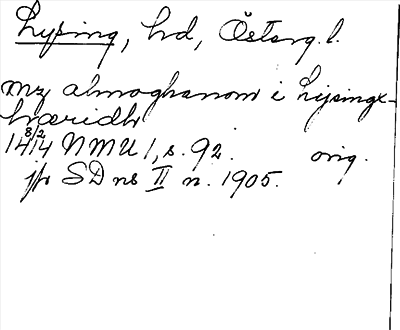 Lysing, hd, Östergl.
mz almoghanom i Lijsingx-
hæridh
1414 8/2 NMU 1, s. 92. orig.
jfr SD ns II n. 1905.